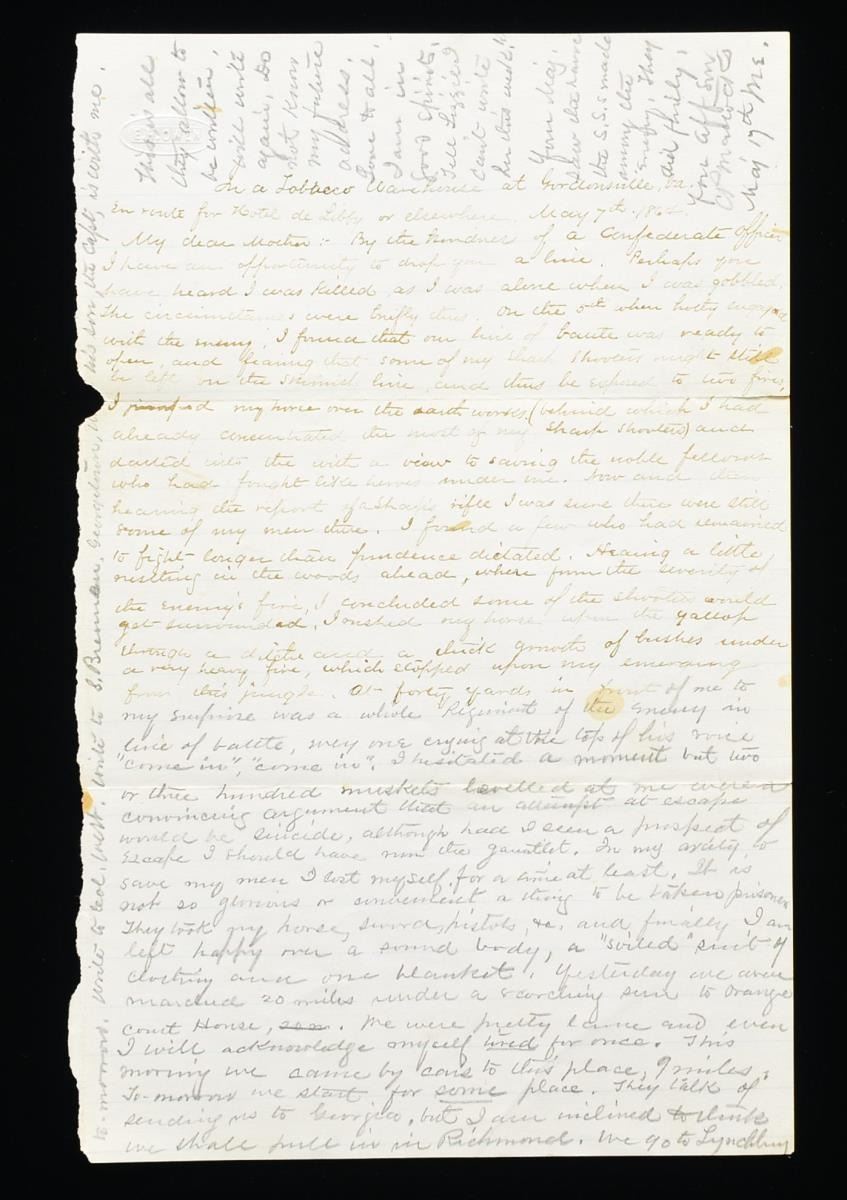 In a Tobacco Warehouse at Gordonsville, Va.
En route for Hotel de Libby or elsewhere. May 7th 1864.
My dear Mother:- By the kindness of a Confederate Officer
I have an opportunity to drop you a line. Perhaps you
have heard I was killed, as I was alone when I was gobbled.
The circumstances were briefly thus. On the 5th when hotly engaged
with the enemy, I found that our line of battle was ready to
open, and fearing that some of my Sharp Shooters might still
be left on the skirmish line, and thus be exposed to two fires,
I jumped my horse over the earth works, (behind which I had
already concentrated the most of my Sharp Shooters) and
darted into the with a view to saving the noble fellows
who had fought like heroes under me. Now and then
hearing the report of a Sharps rifle I was sure there were still
some of my men there. I found a few who had remained
to fight longer than prudence dictated. Hearing a little
rustling in the woods ahead, where from the severity of
the enemy's fire, I concluded some of the shooters would
get surrounded, I rushed my horse upon the gallop
through a ditch and a thick growth of bushes under
a very heavy fire, which stopped upon my emerging
from this jungle. At forty yards in front of me to
my surprise was a whole Regiment of the Enemy in
line of battle, every one crying at the top of his voice
"come in", "come in". I hesitated a moment but two
or three hundred muskets levelled at me were a
convincing argument that an attempt at escape
would be suicide, although had I seen a prospect of
Escape I should have run the gauntlet. In my anxiety to
save my men I lost myself for a time at least. It is
not so glorious or convenient a thing to be taken prisoner
They took my horse, sword, pistols, &c. and finally I am
left happy over a sound body, a "soiled" suit of
clothing and one blanket. Yesterday we were
marched 20 miles under a scorching sun to Orange
Court House, . We were pretty lame and even
I will acknowledge myself tired for once. This
morning we came by cars to this place, 9 miles.
To-morrow we start for some place. They talk of
sending us to Georgia, but I am inclined to think
we shall pull in in Richmond. We go to Lynchburg
to-morrow. Write to Col. West. Write to S. Brennan, Georgetown, his son, the Capt, is with me.
This is all
they allow to
be written,
will write
again, Do
not know
my future
address.
Love to all.
I am in
Good Spirits.
Tell Lizzie I
can't write
her this week.
You may
the S.S.s made
among the
Enemy. They
did finely.
Your aff Son
May 17th Me.